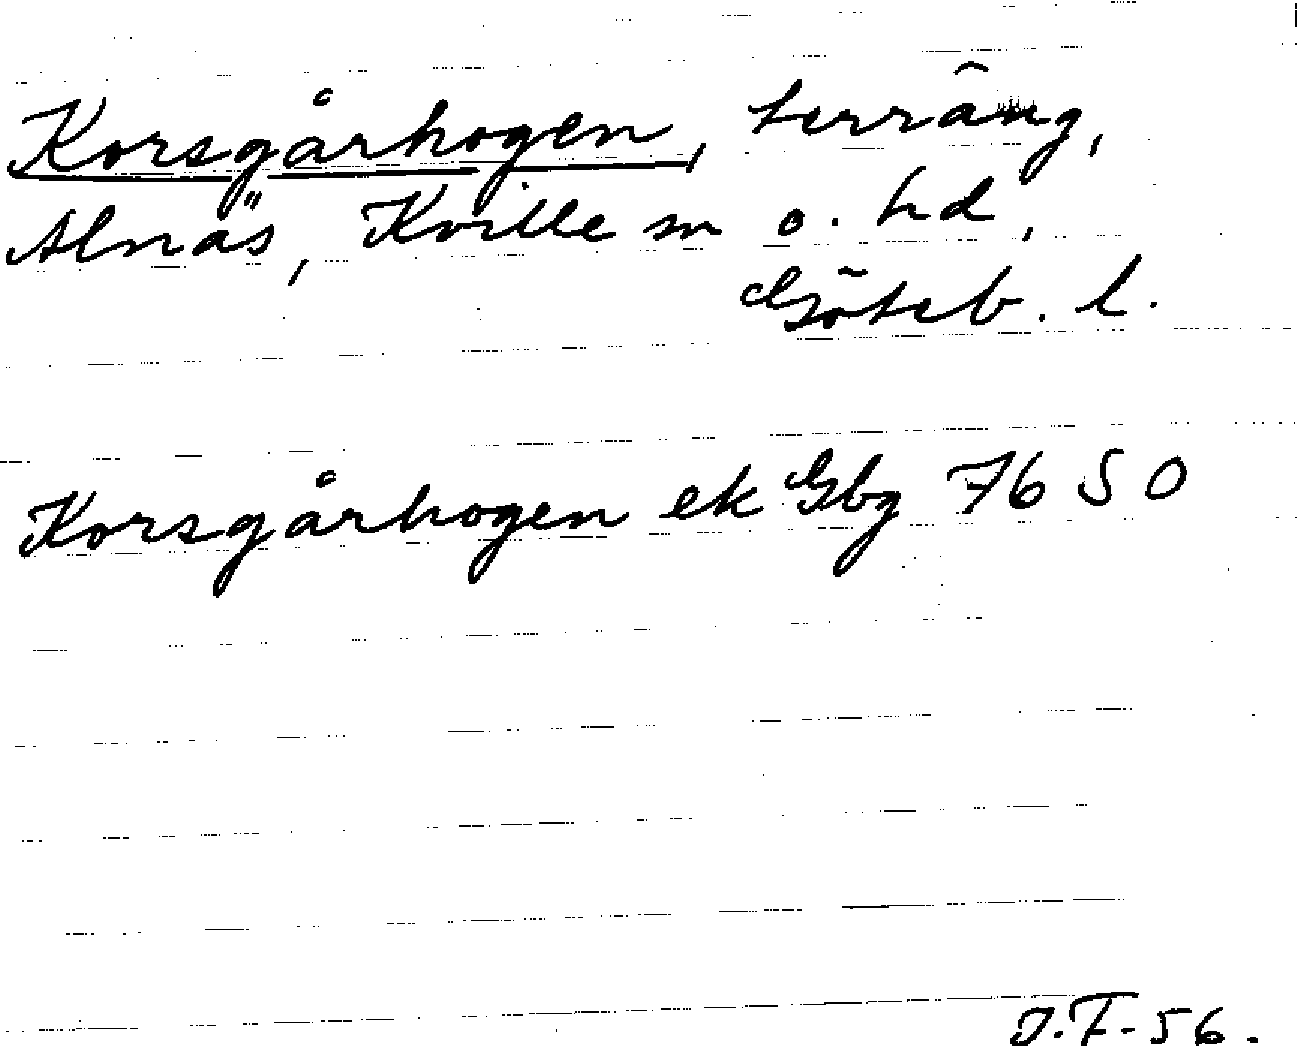 Korsgårhogen, terräng,
Alnäs, Kville sn o. hd,
Göteb. l.
Korsgårhogen ek Gbg 76 SO
J.F-56.